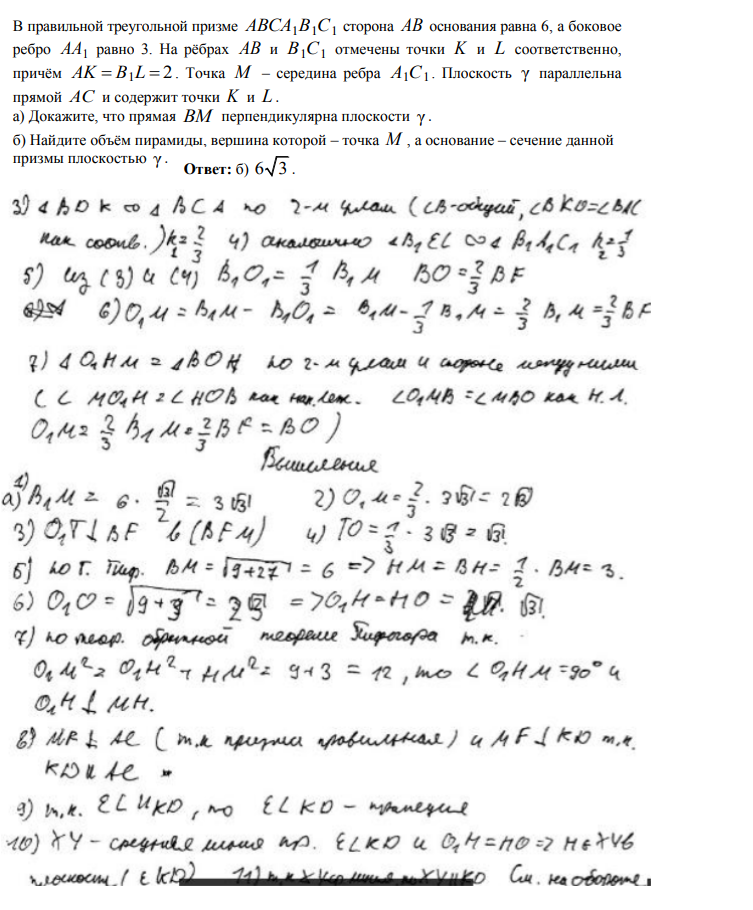 В правильной треугольной призме ABCA₁B₁C₁ сторона AB основания равна 6, а боковое
ребро AA₁ равно 3. На рёбрах AB и B₁C₁ отмечены точки K и L соответственно,
причём AK = B₁L = 2. Точка M – середина ребра A₁C₁. Плоскость γ параллельна
прямой AC и содержит точки K и L.
а) Докажите, что прямая BM перпендикулярна плоскости γ.
б) Найдите объём пирамиды, вершина которой – точка M, а основание – сечение данной
призмы плоскостью γ. Ответ: б) 6√3.
3) ΔBDK ∞ ΔBCA по 2-м углам (∠B-общий, ∠BKD=∠BAC
как соотв.) k₁=2/3 4) аналогично ΔB₁EL ∞ ΔB₁A₁C₁ k₂=1/3
5) из (3) и (4) B₁O₁ = 1/3 B₁M BO = 2/3 BF
6) O₁M = B₁M − B₁O₁ = B₁M − 1/3 B₁M = 2/3 B₁M = 2/3 BF
7) ΔO₁HM = ΔBOH по 2-м углам и стороне между ними
(∠MO₁H = ∠HOB как нак. леж. ∠O₁MB = ∠MBO как Н.Л.
O₁M = 2/3 B₁M = 2/3 BF = BO)
Вычисления
а) 1) B₁M = 6 · √3/2 = 3√3 2) O₁M = 2/3 · 3√3 = 2√3
3) O₁T ⊥ BF в (BFM) 4) TO = 1/3 · 3√3 = √3.
5) по т. Пиф. BM = √(9+27) = 6 => HM = BH = 1/2 · BM = 3.
6) O₁O = √(9+3) = 2√3 => O₁H = HO = √3.
7) по теор. обратной теореме Пифагора т.к.
O₁M² = O₁H² + HM² = 9+3 = 12, то ∠O₁HM = 90° и
O₁H ⊥ MH.
8) MF ⊥ AC (т.к призма правильная) и MF ⊥ KD т.к.
KD ∥ AC
9) т.к. EL ∥ KD, то ELKD – трапеция
10) XY – средняя линия тр. ELKD и O₁H = HO => H ∈ XY в
плоскости (EKD) 11) т.к XY ср линия, то XY ∥ KD См. на обороте